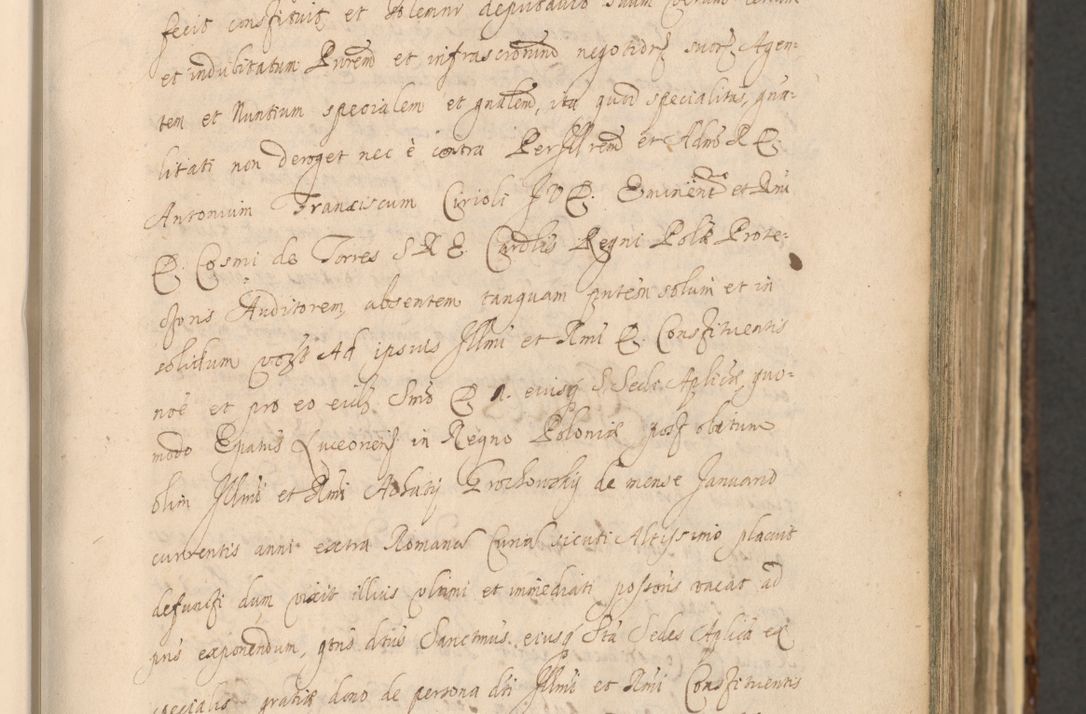 fecit constituit et solemnr deputavit suum verum certum
et indubitatum Prorem et infrascriorum negotior suor Agen-
tem et Nuntium specialem et gnalem, ita quod specialitas, gna-
litati non deroget nec è contra PerJll rem et Adm R D.
Antonium Franciscum Curioli J V D. Eminent et Rmi
D. Cosmi de Torres S R E. Cardlis Regni Polæ Prote-
ctoris Auditorem, absentem tanquam pntem solum et in
solidum vozt Ad ipsius Jllmi et Rmi D. Constituentis
noe et pro eo eidē Smo D. N. eiusq S Sedi Aplicæ, quo-
modo Epatus Luceorien in Regno Poloniæ post obitum
olim Jllmi et Rmi Achatij Grochowskij de mense Januario
currentis anni extra Romanā Curiā sicuti Altissimo placuit
defuncti dum vixit illius ultimi et immediati possoris vacat ad
pns exponendum, qtnus dtus Sanctmus, eiusq Sta Sedes Aplica ex
specialis gratiæ dono de persona dti Jllmi et Rmi Constituentis